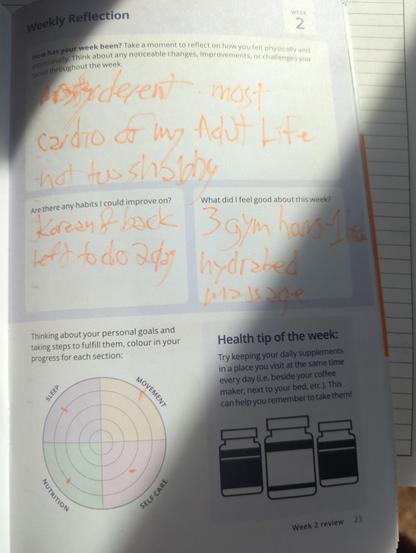 Weekly Reflection
WEEK
2
How has your week been? Take a moment to reflect on how you felt physically and
emotionally. Think about any noticeable changes, improvements, or challenges you
faced throughout the week.
decent. most
cardio of my Adult Life
not too shabby
Are there any habits I could improve on?
Korean & back
left to do 2day
What did I feel good about this week?
3 gym hours-1
hydrated
massage
Thinking about your personal goals and
taking steps to fulfill them, colour in your
progress for each section:
SLEEP
MOVEMENT
NUTRITION
SELF CARE
Health tip of the week:
Try keeping your daily supplements
in a place you visit at the same time
every day (i.e. beside your coffee
maker, next to your bed, etc.). This
can help you remember to take them!
Week 2 review 23